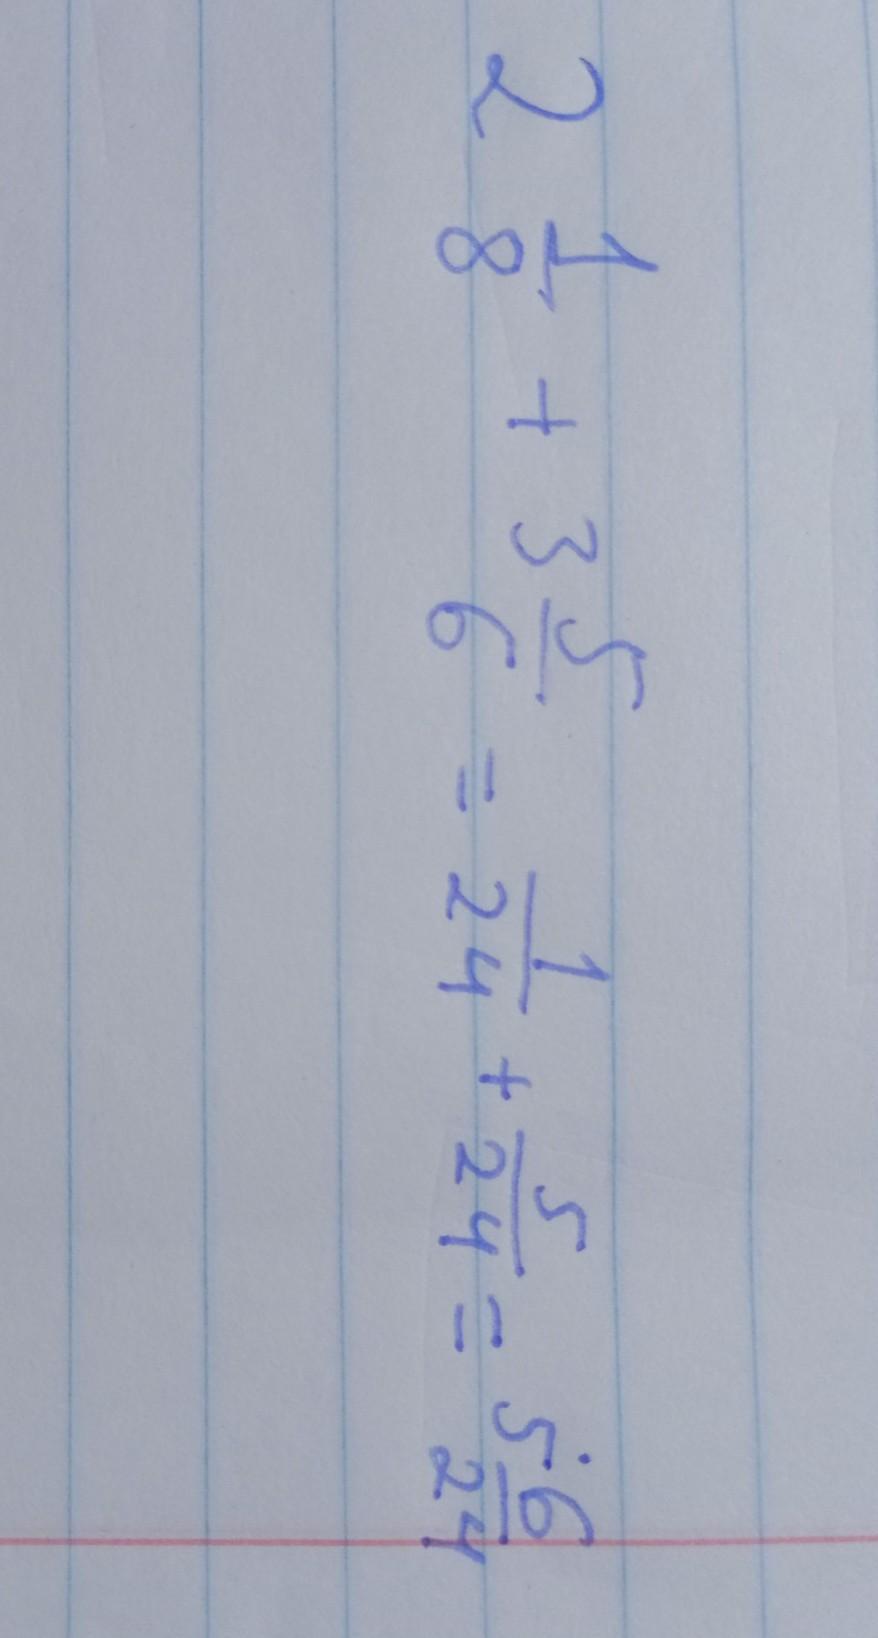 2 1/8 + 3 5/6 = 1/24 + 5/24 = 5 6/24